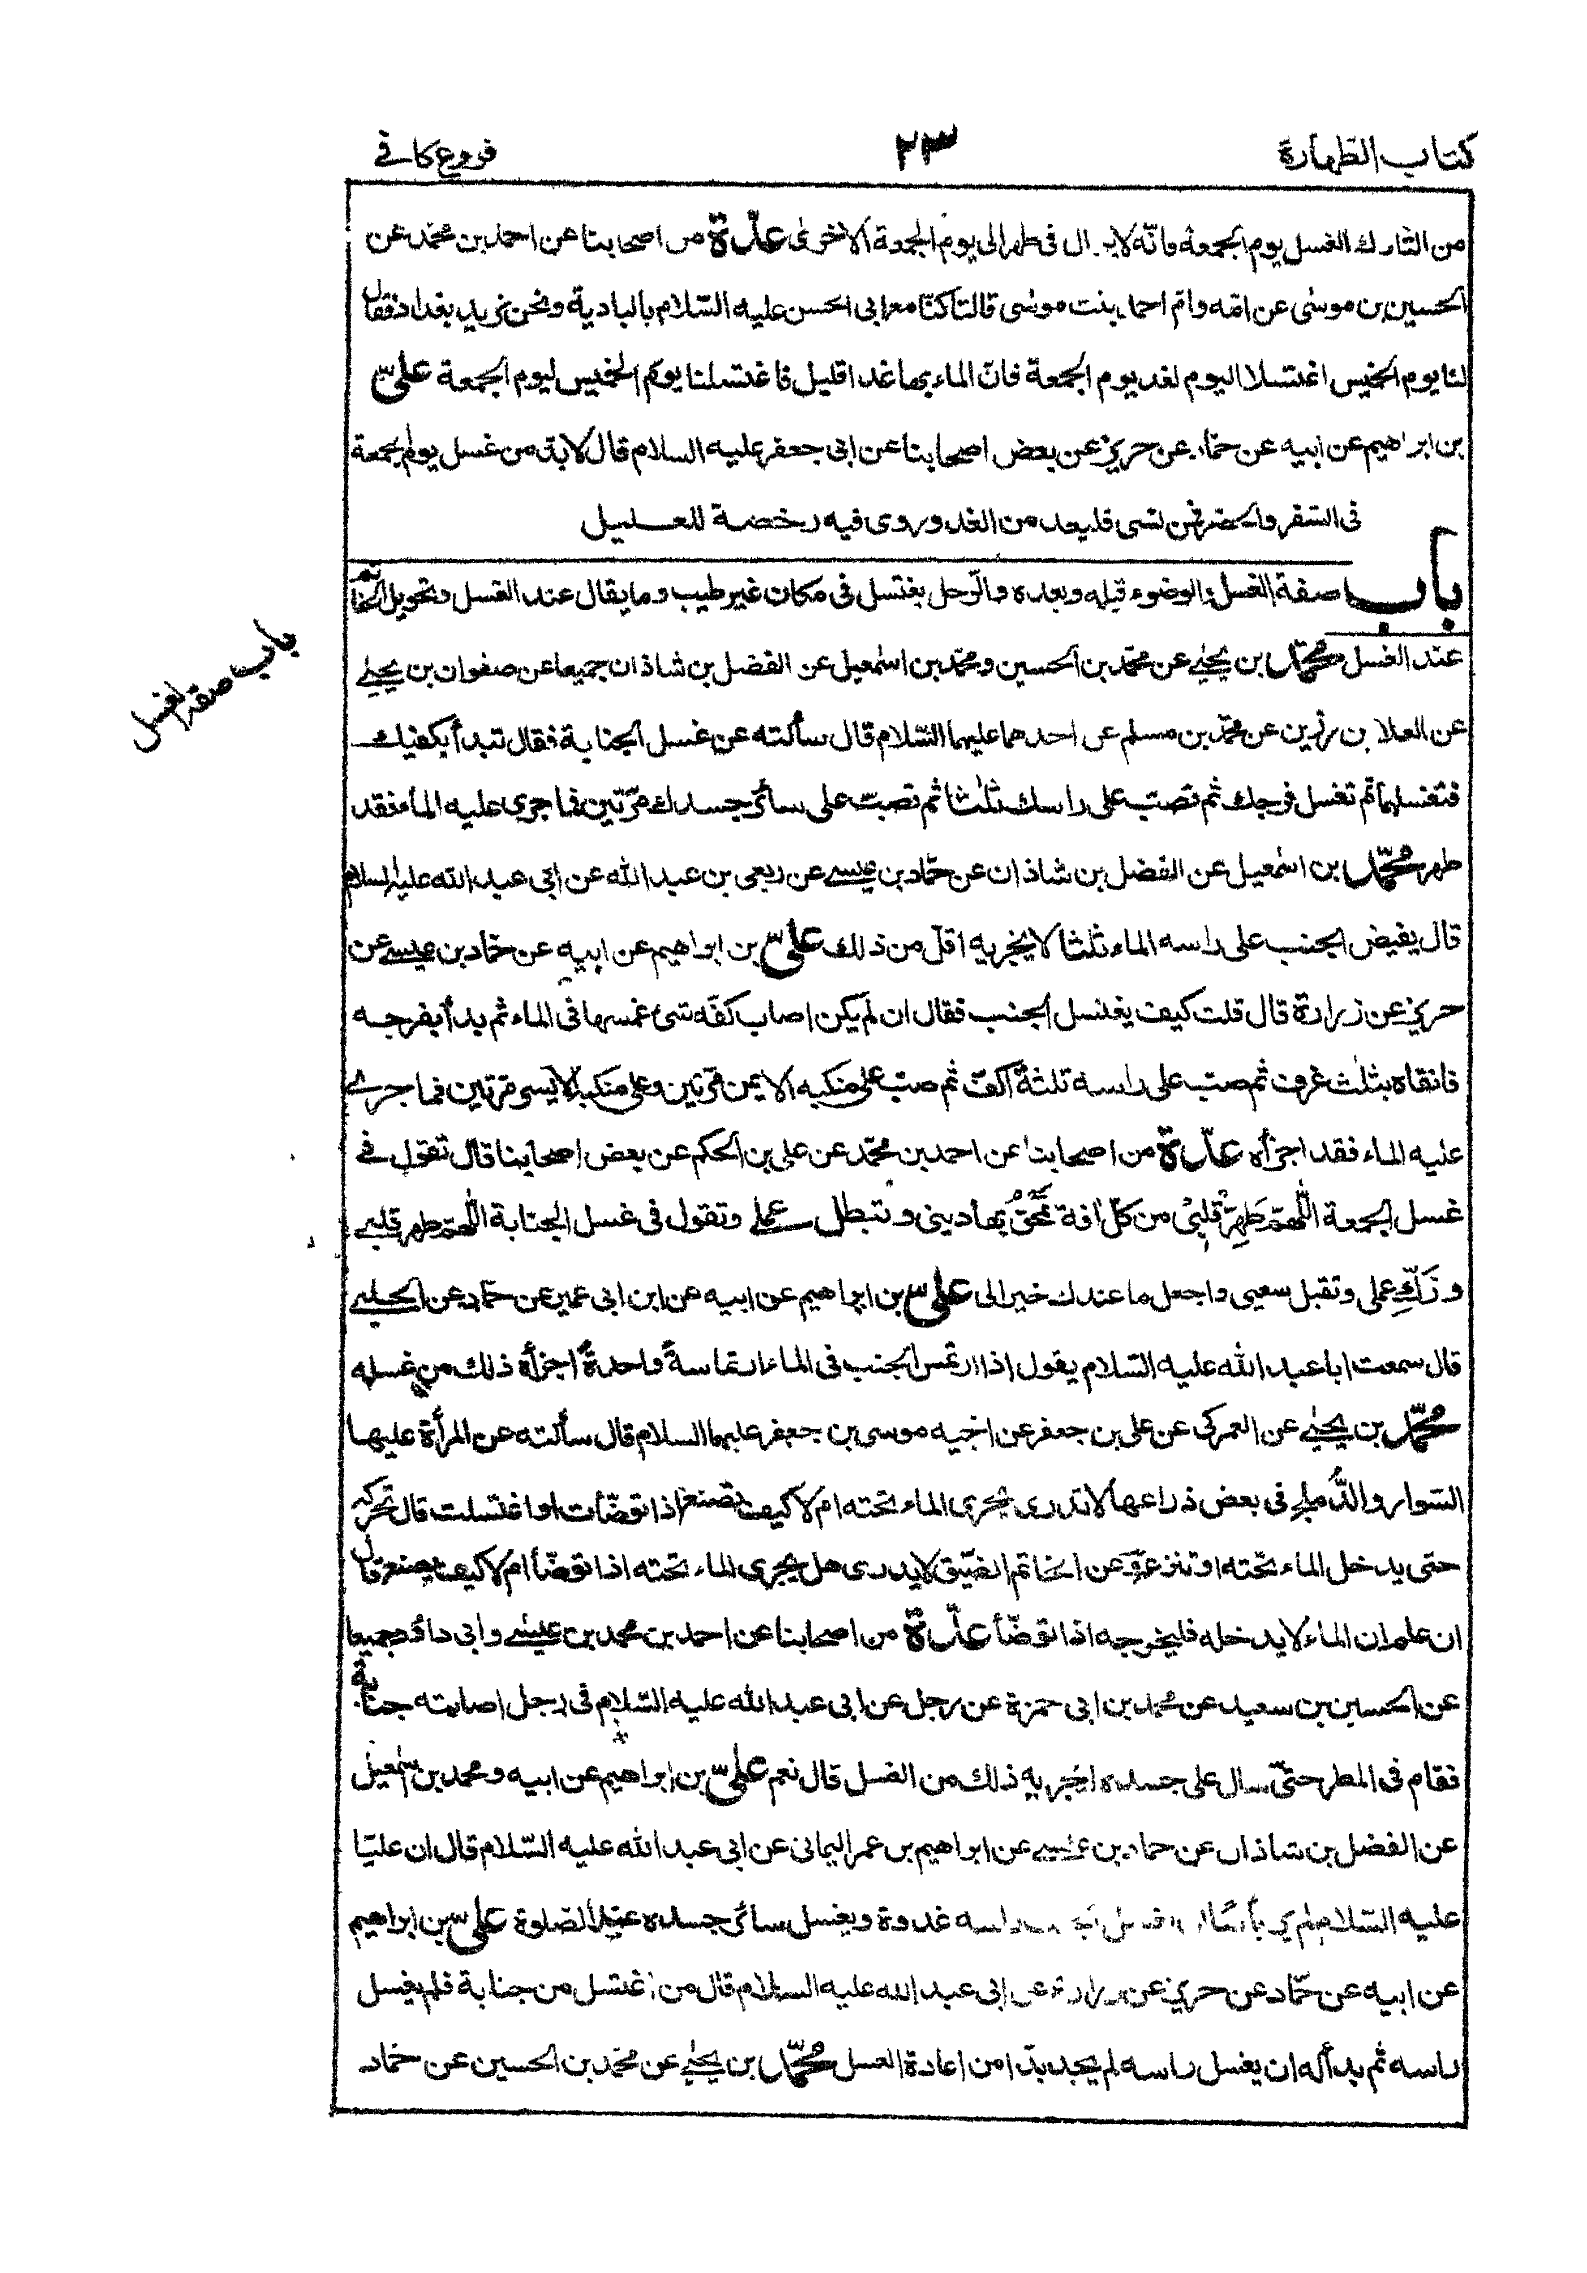 كتاب الطهارة
٢٣
فروع كافي
من التارك الغسل يوم الجمعة فانّه لا يزال فى طهر الى يوم الجمعة الاخرىٰ عدّة من اصحابنا عن احمد بن محمّد عن
الحسين بن موسٰى عن امّه وامّ احمد بنت موسٰى قالتا كنّا مع ابى الحسن عليه السّلام بالبادية ونحن نريد بغداد فقال
لنا يوم الخميس اغتسلا اليوم لغد يوم الجمعة فانّ الماء بها غدا قليل فاغتسلنا يوم الخميس ليوم الجمعة علىّ
بن ابراهيم عن ابيه عن حمّاد عن حريز عن بعض اصحابنا عن ابى جعفر عليه السلام قال لا بدّ من غسل يوم الجمعة
فى السّفر والحضر فمن نسى فليعد من الغد وروى فيه رخصة للعـليل
باب صفة الغسل والوضوء قبله وبعده والرّجل يغتسل فى مكان غير طيب وما يقال عند الغسل وتحويل الخاتم
عند الغسل محمّد بن يحيٰى عن محمّد بن الحسين ومحمّد بن اسمٰعيل عن الفضل بن شاذان جميعا عن صفوان بن يحيٰى
عن العلا بن رزين عن محمّد بن مسلم عن احدهما عليهما السّلام قال سألته عن غسل الجنابة فقال تبدأ بكفيك
فتغسلهما ثم تغسل فرجك ثم تصبّ على راسك ثلٰثا ثم تصبّ على سائر جسدك مرّتين فما جرى عليه الماء فقد
طهر محمّد بن اسمٰعيل عن الفضل بن شاذان عن حمّاد بن عيسى عن ربعى بن عبد الله عن ابى عبد الله عليه السلام
قال يفيض الجنب على راسه الماء ثلثا لا يجزيه اقلّ من ذلك علىّ بن ابراهيم عن ابيه عن حمّاد بن عيسى عن
حريز عن زرارة قال قلت كيف يغتسل الجنب فقال ان لم يكن اصاب كفّه شئ غمسها فى الماء ثم بدأ بفرجه
فانقاه بثلٰث غرف ثم صبّ على راسه ثلٰثة اكفّ ثم صبّ على منكبه الايمن مرّتين وعلى منكبه الايسر مرتين فما جرى
عليه الماء فقد اجزأه عدّة من اصحابنا عن احمد بن محمّد عن على بن الحكم عن بعض اصحابنا قال تقول فى
غسل الجمعة اللّٰهمّ طَهِّرْ قلبىْ من كلّ اٰفة تمحَقُ بها دينى وتبطل عملى وتقول فى غسل الجنابة اللّٰهمّ طهر قلبى
وزَكِّ عملى وتقبل سعيى واجعل ما عندك خيرا لى علىّ بن ابراهيم عن ابيه عن ابن ابى عمير عن حمّاد عن الحلبى
قال سمعت ابا عبد الله عليه السّلام يقول اذا ارتمس الجنب فى الماء ارتماسةً واحدةً اجزأه ذلك من غسله
محمّد بن يحيٰى عن العمركى عن على بن جعفر عن اخيه موسى بن جعفر عليهما السلام قال سألته عن المرأة عليها
السّوار والدُّملج فى بعض ذراعها لا تدرى يجرى الماء تحته ام لا كيف تصنع اذا توضّأت او اغتسلت قال تحركه
حتى يدخل الماء تحته او تنزعه وعن الخاتم الضيّق لا يدرى هل يجرى الماء تحته اذا توضّأ ام لا كيف يصنع قال
ان علم ان الماء لا يدخله فليخرجه اذا توضّأ عدّة من اصحابنا عن احمد بن محمد بن عيسٰى وابى داؤد جميعا
عن الحسين بن سعيد عن محمد بن ابى حمزة عن رجل عن ابى عبد الله عليه السّلام فى رجل اصابته جنابة
فقام فى المطر حتّى سال على جسده ايجزيه ذلك من الغسل قال نعم علىّ بن ابراهيم عن ابيه ومحمد بن اسمٰعيل
عن الفضل بن شاذان عن حماد بن عيسى عن ابراهيم بن عمر اليمانى عن ابى عبد الله عليه السّلام قال ان عليّا
عليه السّلام لم ير بأسًا ان يغسل الجنب راسه غدوة ويغسل سائر جسده عند الصّلوة علىّ بن ابراهيم
عن ابيه عن حمّاد عن حريز عن زرارة عن ابى عبد الله عليه السلام قال من اغتسل من جنابة فلم يغسل
راسه ثم بدأ له ان يغسل راسه لم يجد بدّا من اعادة الغسل محمّد بن يحيٰى عن محمّد بن الحسين عن حمّاد
باب صفة الغسل